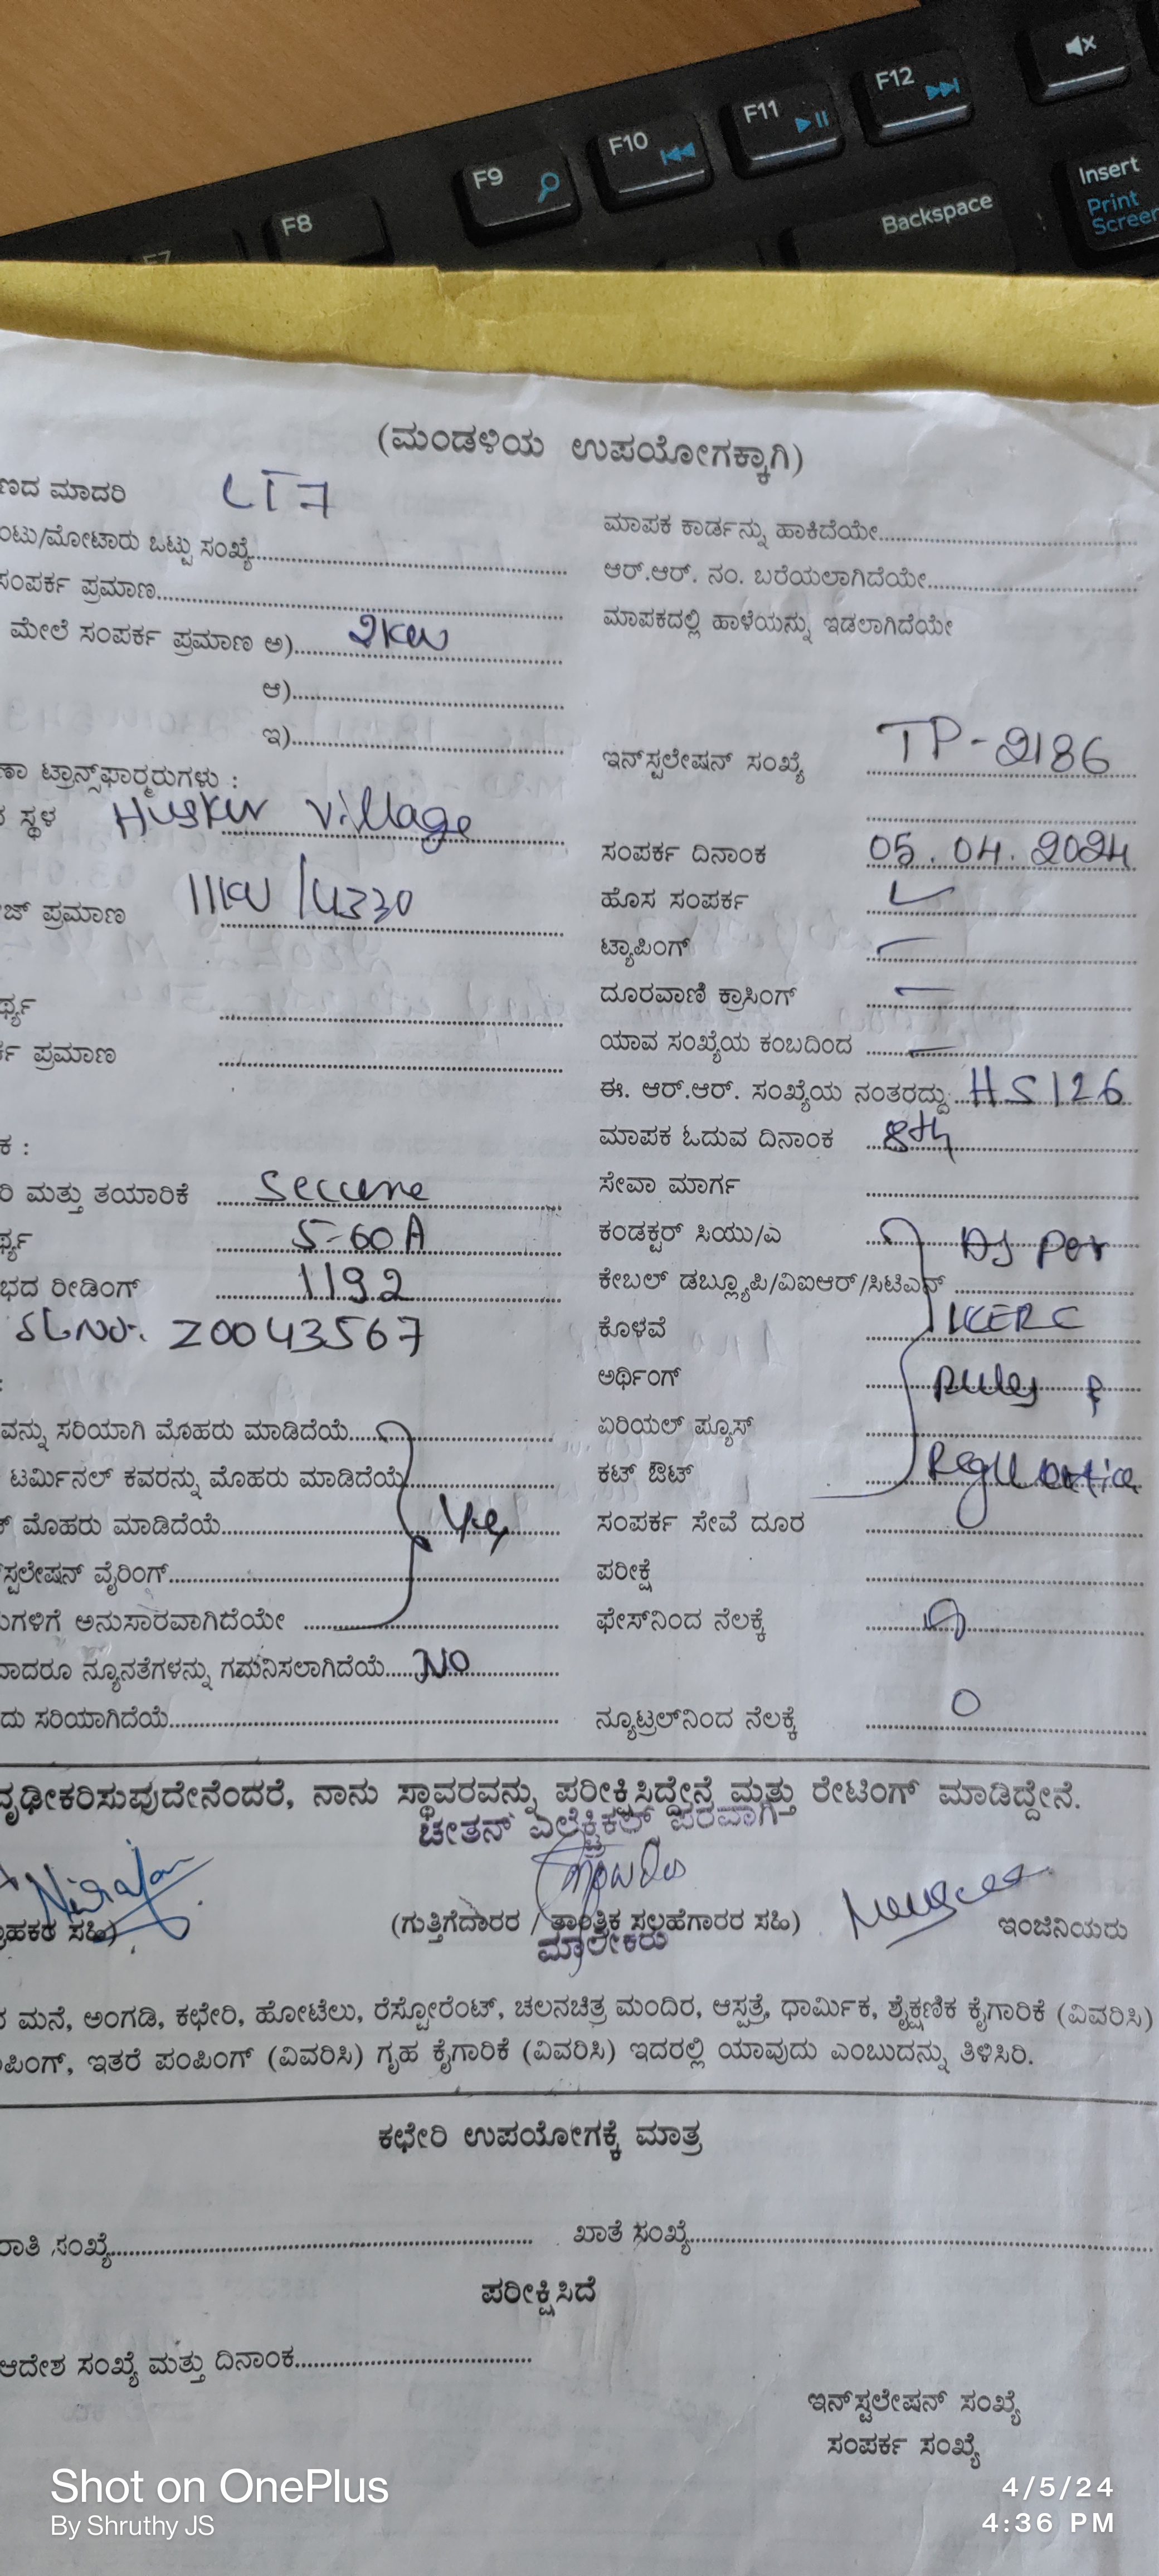 F7 F8 F9 F10 F11 F12
Backspace
Insert
Print
Screen
(ಮಂಡಳಿಯ ಉಪಯೋಗಕ್ಕಾಗಿ)
ಣದ ಮಾದರಿ LT7
ಂಟು/ಮೋಟಾರು ಒಟ್ಟು ಸಂಖ್ಯೆ
ಮಾಪಕ ಕಾರ್ಡನ್ನು ಹಾಕಿದೆಯೇ
ಸಂಪರ್ಕ ಪ್ರಮಾಣ
ಆರ್.ಆರ್. ನಂ. ಬರೆಯಲಾಗಿದೆಯೇ
ಮೇಲೆ ಸಂಪರ್ಕ ಪ್ರಮಾಣ ಅ) 2KW
ಮಾಪಕದಲ್ಲಿ ಹಾಳೆಯನ್ನು ಇಡಲಾಗಿದೆಯೇ
ಆ)
ಇ)
ಇನ್‌ಸ್ಟಲೇಷನ್ ಸಂಖ್ಯೆ TP-2186
ಣಾ ಟ್ರಾನ್ಸ್‌ಫಾರ್ಮರುಗಳು :
ಸ್ಥಳ Huskur Village
ಸಂಪರ್ಕ ದಿನಾಂಕ 05.04.2024
ಜ್ ಪ್ರಮಾಣ 11KV
ಹೊಸ ಸಂಪರ್ಕ
ಟ್ಯಾಪಿಂಗ್
ರ್ಥ್ಯ
ದೂರವಾಣಿ ಕ್ರಾಸಿಂಗ್
ರ್ಕ ಪ್ರಮಾಣ
ಯಾವ ಸಂಖ್ಯೆಯ ಕಂಬದಿಂದ
ಈ. ಆರ್.ಆರ್. ಸಂಖ್ಯೆಯ ನಂತರದ್ದು HS126
ಕ :
ಮಾಪಕ ಓದುವ ದಿನಾಂಕ 8th
ರಿ ಮತ್ತು ತಯಾರಿಕೆ Secure
ಸೇವಾ ಮಾರ್ಗ
ರ್ಥ್ಯ 5-60A
ಕಂಡಕ್ಟರ್ ಸಿಯು/ಎ As per
ಭದ ರೀಡಿಂಗ್ 1192
ಕೇಬಲ್ ಡಬ್ಲ್ಯೂಪಿ/ವಿಐಆರ್/ಸಿಟಿಎಸ್
SL No. Z0043567
ಕೊಳವೆ KERC
ಅರ್ಥಿಂಗ್ Rules &
ವನ್ನು ಸರಿಯಾಗಿ ಮೊಹರು ಮಾಡಿದೆಯೆ
ಏರಿಯಲ್ ಪ್ಯೂಸ್
ಟರ್ಮಿನಲ್ ಕವರನ್ನು ಮೊಹರು ಮಾಡಿದೆಯೆ
ಕಟ್ ಔಟ್ Regulation
ಕ್ ಮೊಹರು ಮಾಡಿದೆಯೆ Yes
ಸಂಪರ್ಕ ಸೇವೆ ದೂರ
ಸ್ಪಲೇಷನ್ ವೈರಿಂಗ್
ಪರೀಕ್ಷೆ
ುಗಳಿಗೆ ಅನುಸಾರವಾಗಿದೆಯೇ
ಫೇಸ್‌ನಿಂದ ನೆಲಕ್ಕೆ
ವಾದರೂ ನ್ಯೂನತೆಗಳನ್ನು ಗಮನಿಸಲಾಗಿದೆಯೆ NO
ದು ಸರಿಯಾಗಿದೆಯೆ
ನ್ಯೂಟ್ರಲ್‌ನಿಂದ ನೆಲಕ್ಕೆ 0
ದೃಢೀಕರಿಸುವುದೇನೆಂದರೆ, ನಾನು ಸ್ಥಾವರವನ್ನು ಪರೀಕ್ಷಿಸಿದ್ದೇನೆ ಮತ್ತು ರೇಟಿಂಗ್ ಮಾಡಿದ್ದೇನೆ.
ಚೇತನ್ ಎಲೆಕ್ಟ್ರಿಕಲ್ ಪರವಾಗಿ
Niraja
ಹಕರ ಸಹಿ) (ಗುತ್ತಿಗೆದಾರರ / ತಾಂತ್ರಿಕ ಸಲ್ಲಹೆಗಾರರ ಸಹಿ) ಇಂಜಿನಿಯರು
ಮಾಲೀಕರು
ಮನೆ, ಅಂಗಡಿ, ಕಛೇರಿ, ಹೋಟೆಲು, ರೆಸ್ಟೋರೆಂಟ್, ಚಲನಚಿತ್ರ ಮಂದಿರ, ಆಸ್ಪತ್ರೆ, ಧಾರ್ಮಿಕ, ಶೈಕ್ಷಣಿಕ ಕೈಗಾರಿಕೆ (ವಿವರಿಸಿ)
ಪಿಂಗ್, ಇತರೆ ಪಂಪಿಂಗ್ (ವಿವರಿಸಿ) ಗೃಹ ಕೈಗಾರಿಕೆ (ವಿವರಿಸಿ) ಇದರಲ್ಲಿ ಯಾವುದು ಎಂಬುದನ್ನು ತಿಳಿಸಿರಿ.
ಕಛೇರಿ ಉಪಯೋಗಕ್ಕೆ ಮಾತ್ರ
ರಾತಿ ಸಂಖ್ಯೆ ಖಾತೆ ಸಂಖ್ಯೆ
ಪರೀಕ್ಷಿಸಿದೆ
ಆದೇಶ ಸಂಖ್ಯೆ ಮತ್ತು ದಿನಾಂಕ
ಇನ್‌ಸ್ಟಲೇಷನ್ ಸಂಖ್ಯೆ
ಸಂಪರ್ಕ ಸಂಖ್ಯೆ
Shot on OnePlus
By Shruthy JS
4/5/24
4:36 PM